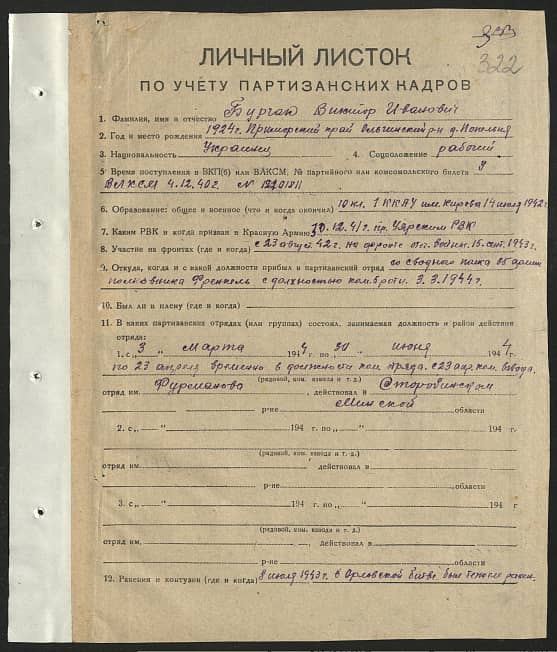 322
ЛИЧНЫЙ ЛИСТОК
ПО УЧЕТУ ПАРТИЗАНСКИХ КАДРОВ
1. Фамилия, имя и отчество Бурган Виктор Иванович
2. Год и место рождения 1924г. Приморский край Ольгинский р-н д.
3. Национальность Украинец 4. Соцположение рабочий
5 Время поступления в ВКП(б) или ВЛКСМ, № партийного или комсомольского билета У
ВЛКСМ 4.12.40г. №
6. Образование: общее и военное (что и когда окончил) 10 кл. 1 ККАУ им. Кирова 14 июля 1942г.
7. Каким РВК и когда призван в Красную Армию 30.12.41г. пр. Уярским РВК
8. Участие на фронтах (где и когда) с 23 август. 42г. на фронте 1943г.
9. Откуда, когда и с какой должности прибыл в партизанский отряд со сводного полка 65 армии
полковника Френкель с должностью ком. роты. 3.3.1944г.
10. Был ли в плену (где и когда)
11. В каких партизанских отрядах (или группах) состоял, занимаемая должность и район действия
отряда:
1. с „ 3 “ марта 1944 г. по „ 30 “ июня 1944 г.
по 23 апреля временно в должности ком. отряда. с 23 апр. ком. взвода.
(рядовой, ком. взвода и т. д.)
отряд им. Фурманова, действовал в Старобинском
р-не Минской области
2. с „ “ 194 г. по „ “ 194 г.
(рядовой, ком. взвода и т. д.)
отряд им. действовал в
р-не области
3. с „ “ 194 г. по „ “ 194 г
(рядовой, ком. взвода и т. д.)
отряд им. действовал в
р-не области
12. Ранения и контузии (где и когда) 8 июля 1943г. в Орловской битве был тяжело ранен.